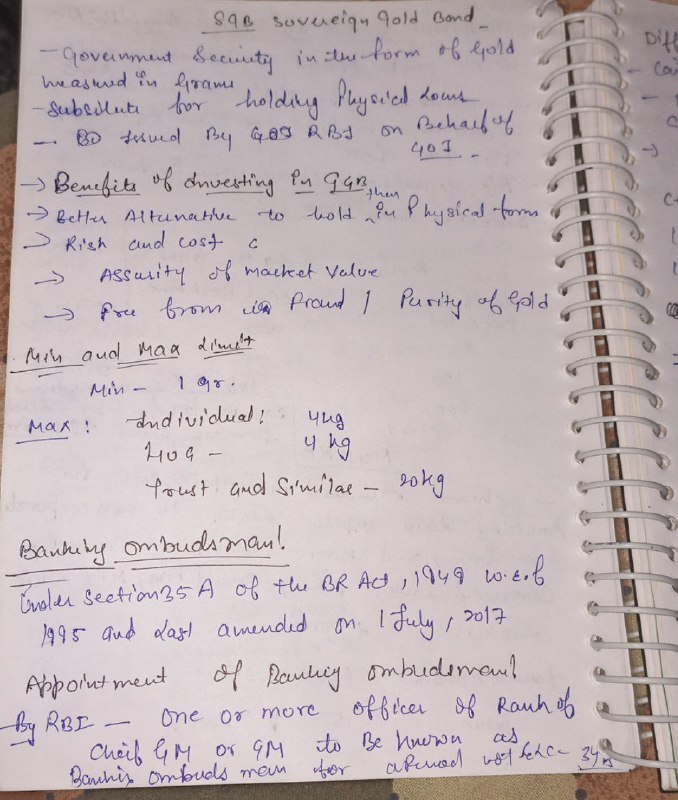 SGB Sovereign Gold Bond
- Government Security in the form of Gold
measured in Grams
- Substitute for holding Physical
- Issued By RBI on Behalf of
GOI
→ Benefits of Investing in SGB
→ Better Alternative to hold then in Physical form
→ Risk and cost c
→ Assurity of market Value
→ Free from Fraud / Purity of Gold
Min and Max Limit
Min - 1 gr.
Max : Individual : 4 kg
- 4 kg
Trust and Similar - 20 kg
Banking ombudsman!
Under Section 35 A of the BR Act, 1949 w.e.f
1995 and Last amended on 1 July, 2017
Appointment of Banking ombudsman!
- By RBI - One or more officer of Rank of
Cheif GM or GM to Be known as
Bankin ombudsman for a
Diff